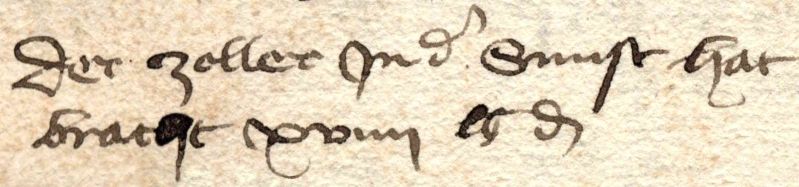 Der zoller Jn d' Sunst hat
bracht xviiij lb d